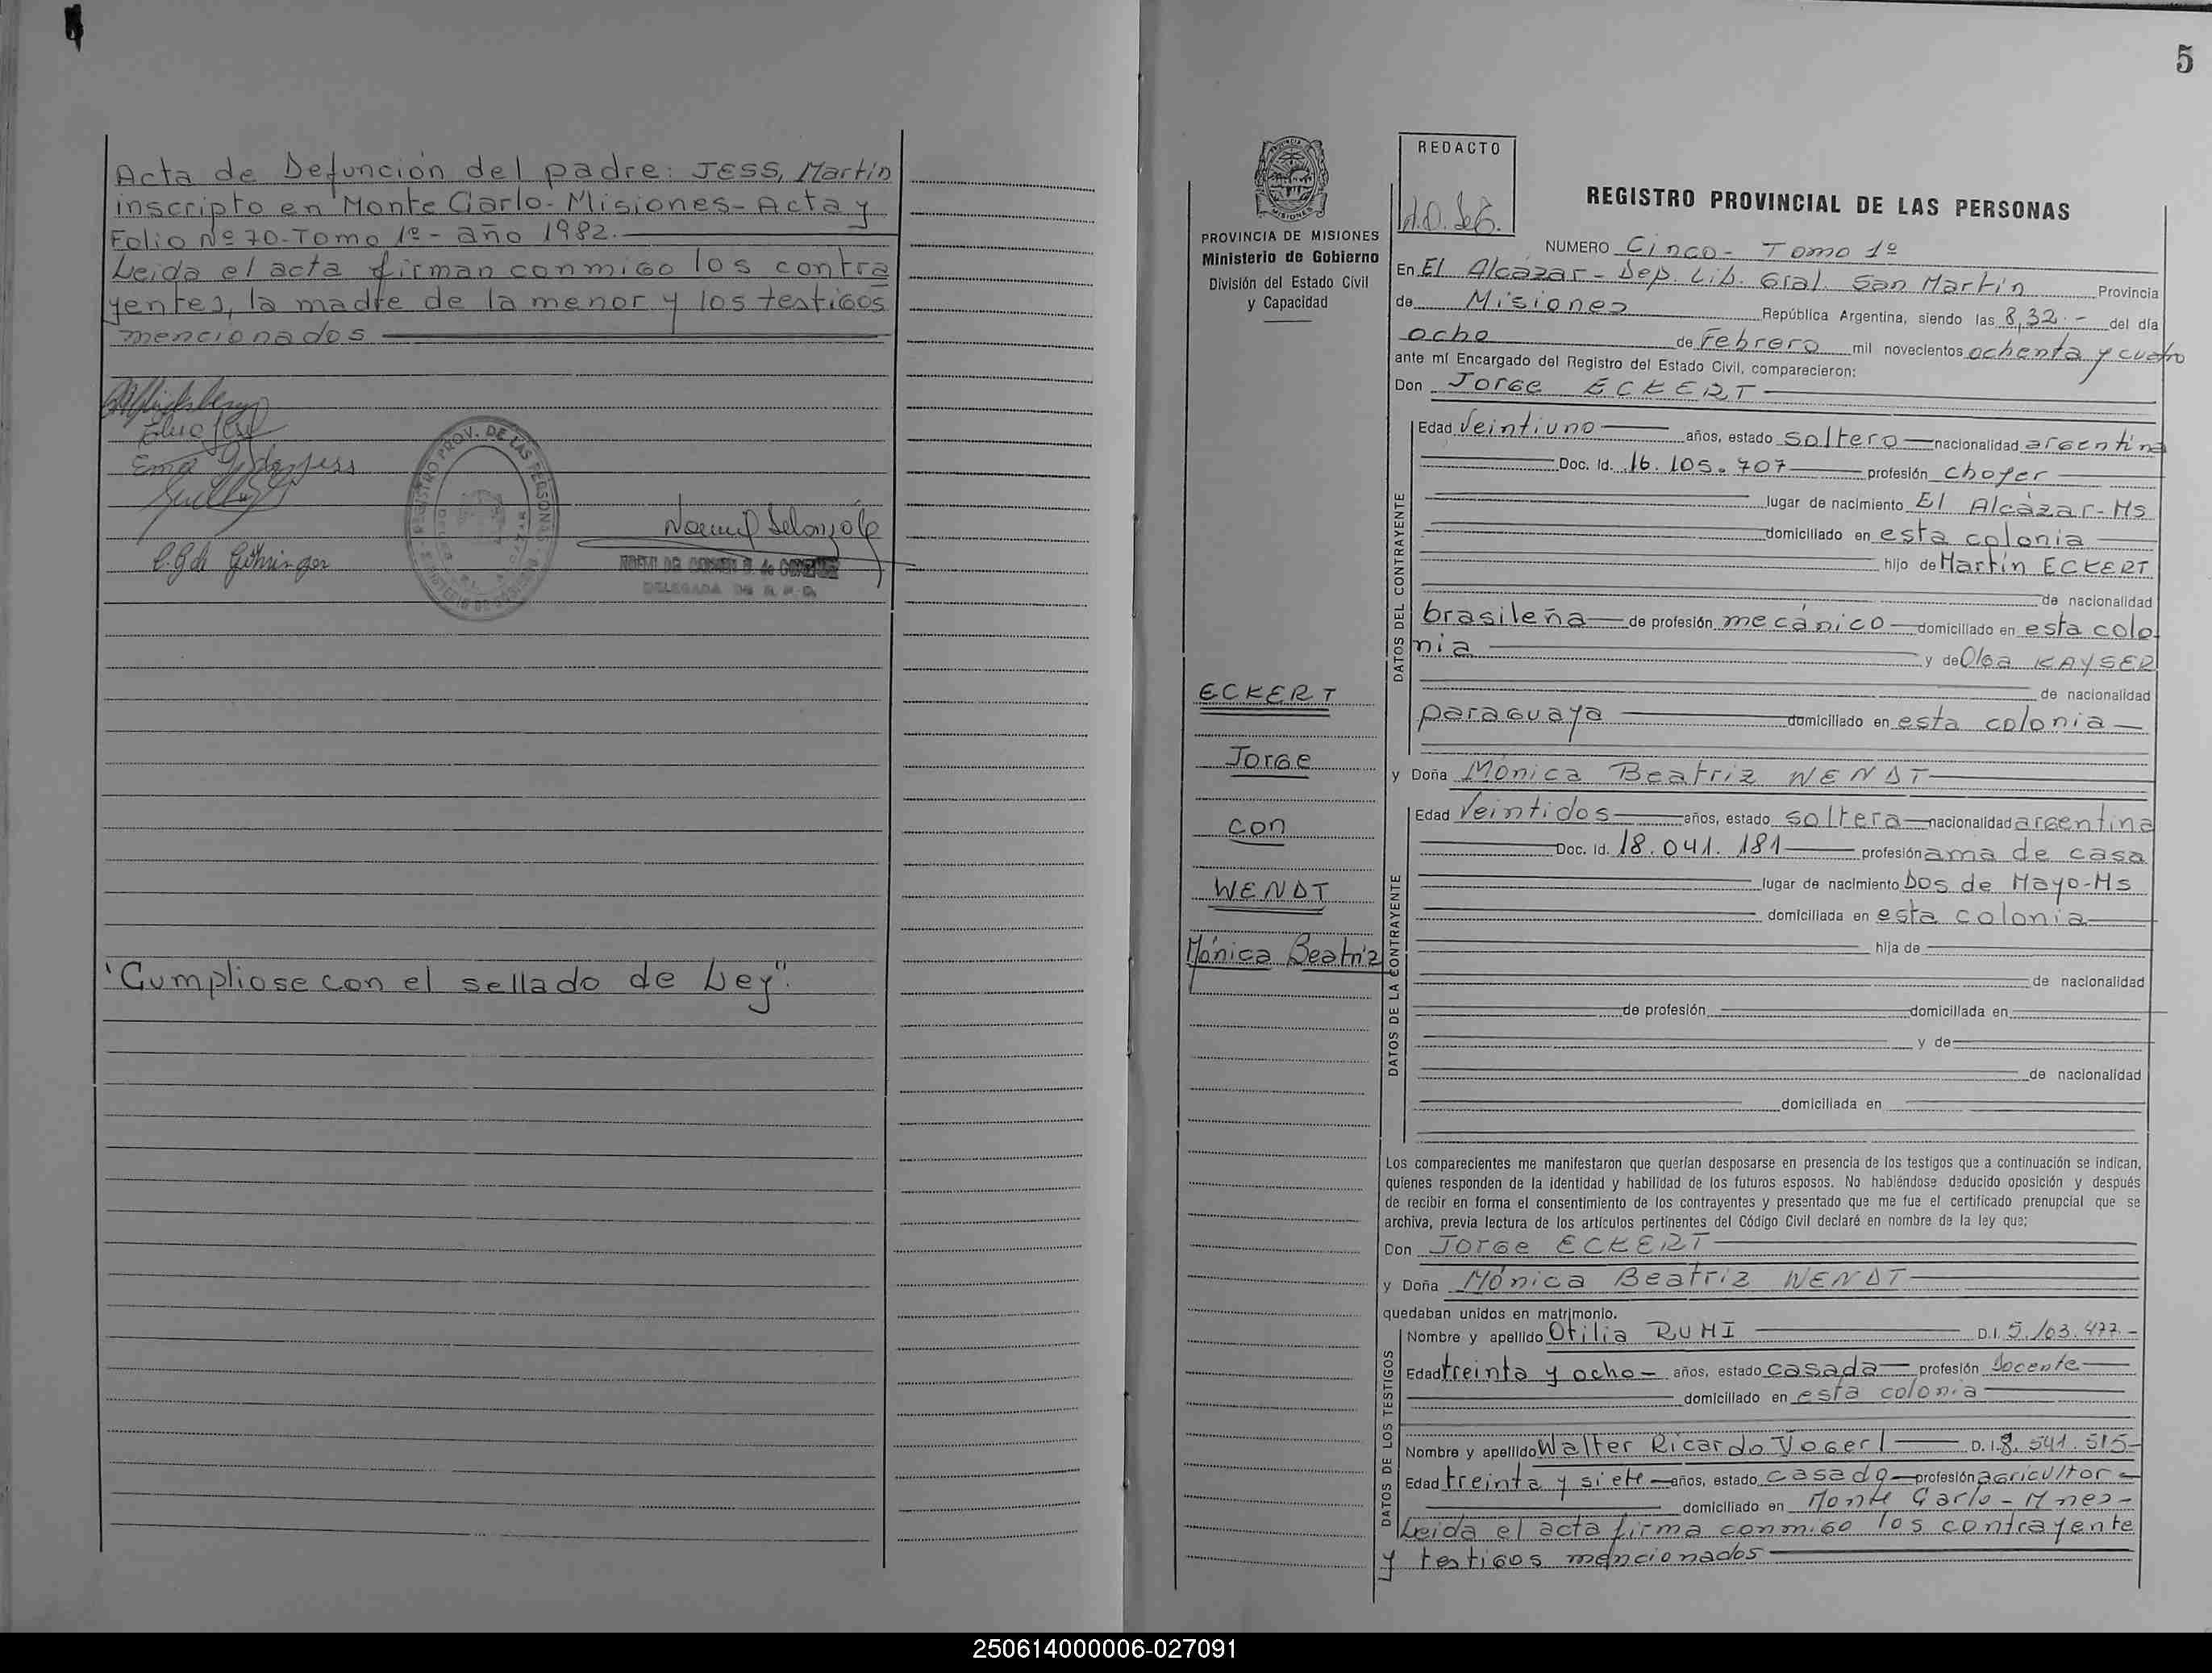 Acta de Defunción del padre: JESS, Martín
inscripto en Monte Carlo-Misiones-Acta y
Folio Nº 70-Tomo 1º- año 1982.
Leida el acta firman conmigo los contra
yentes, la madre de la menor y los testigos
mencionados
REGISTRO PROV. DE LAS PERSONAS
DELEGADA DE R. P. C.
"Cumpliose con el sellado de Ley".
5
REDACTO
PROVINCIA DE MISIONES
Ministerio de Gobierno
División del Estado Civil
y Capacidad
REGISTRO PROVINCIAL DE LAS PERSONAS
NUMERO Cinco- Tomo 1º
En El Alcázar-Dep. Lib. Gral. San Martín Provincia
de Misiones República Argentina, siendo las 8,32.- del día
ocho de Febrero mil novecientos ochenta y cuatro
ante mí Encargado del Registro del Estado Civil, comparecieron:
Don Jorge ECKERT
DATOS DEL CONTRAYENTE
Edad Veintiuno años, estado soltero nacionalidad argentina
Doc. Id. 16.105.707 profesión chofer
lugar de nacimiento El Alcázar-Ms
domiciliado en esta colonia
hijo de Martín ECKERT
de nacionalidad
brasileña de profesión mecánico domiciliado en esta colo
nia y de Olga KAYSER
de nacionalidad
paraguaya domiciliado en esta colonia
ECKERT
Jorge
con
WENDT
Mónica Beatriz
y Doña Mónica Beatriz WENDT
DATOS DE LA CONTRAYENTE
Edad Veintidos años, estado soltera nacionalidad argentina
Doc. Id. 18.041.181 profesión ama de casa
lugar de nacimiento Dos de Mayo-Ms
domiciliada en esta colonia
hija de
de nacionalidad
de profesión domiciliada en
y de
de nacionalidad
domiciliada en
Los comparecientes me manifestaron que querían desposarse en presencia de los testigos que a continuación se indican,
quienes responden de la identidad y habilidad de los futuros esposos. No habiéndose deducido oposición y después
de recibir en forma el consentimiento de los contrayentes y presentado que me fue el certificado prenupcial que se
archiva, previa lectura de los artículos pertinentes del Código Civil declaré en nombre de la ley que;
Don Jorge ECKERT
y Doña Mónica Beatriz WENDT
quedaban unidos en matrimonio.
DATOS DE LOS TESTIGOS
Nombre y apellido Otilia RUHI D.I. 5.103.477.-
Edad treinta y ocho- años, estado casada profesión docente
domiciliado en esta colonia
Nombre y apellido Walter Ricardo Vogerl D.I. 8.541.515-
Edad treinta y siete años, estado casado profesión agricultor
domiciliado en Monte Carlo-Mnes-
Leida el acta firma conmigo los contrayente
y testigos mencionados
250614000006-027091